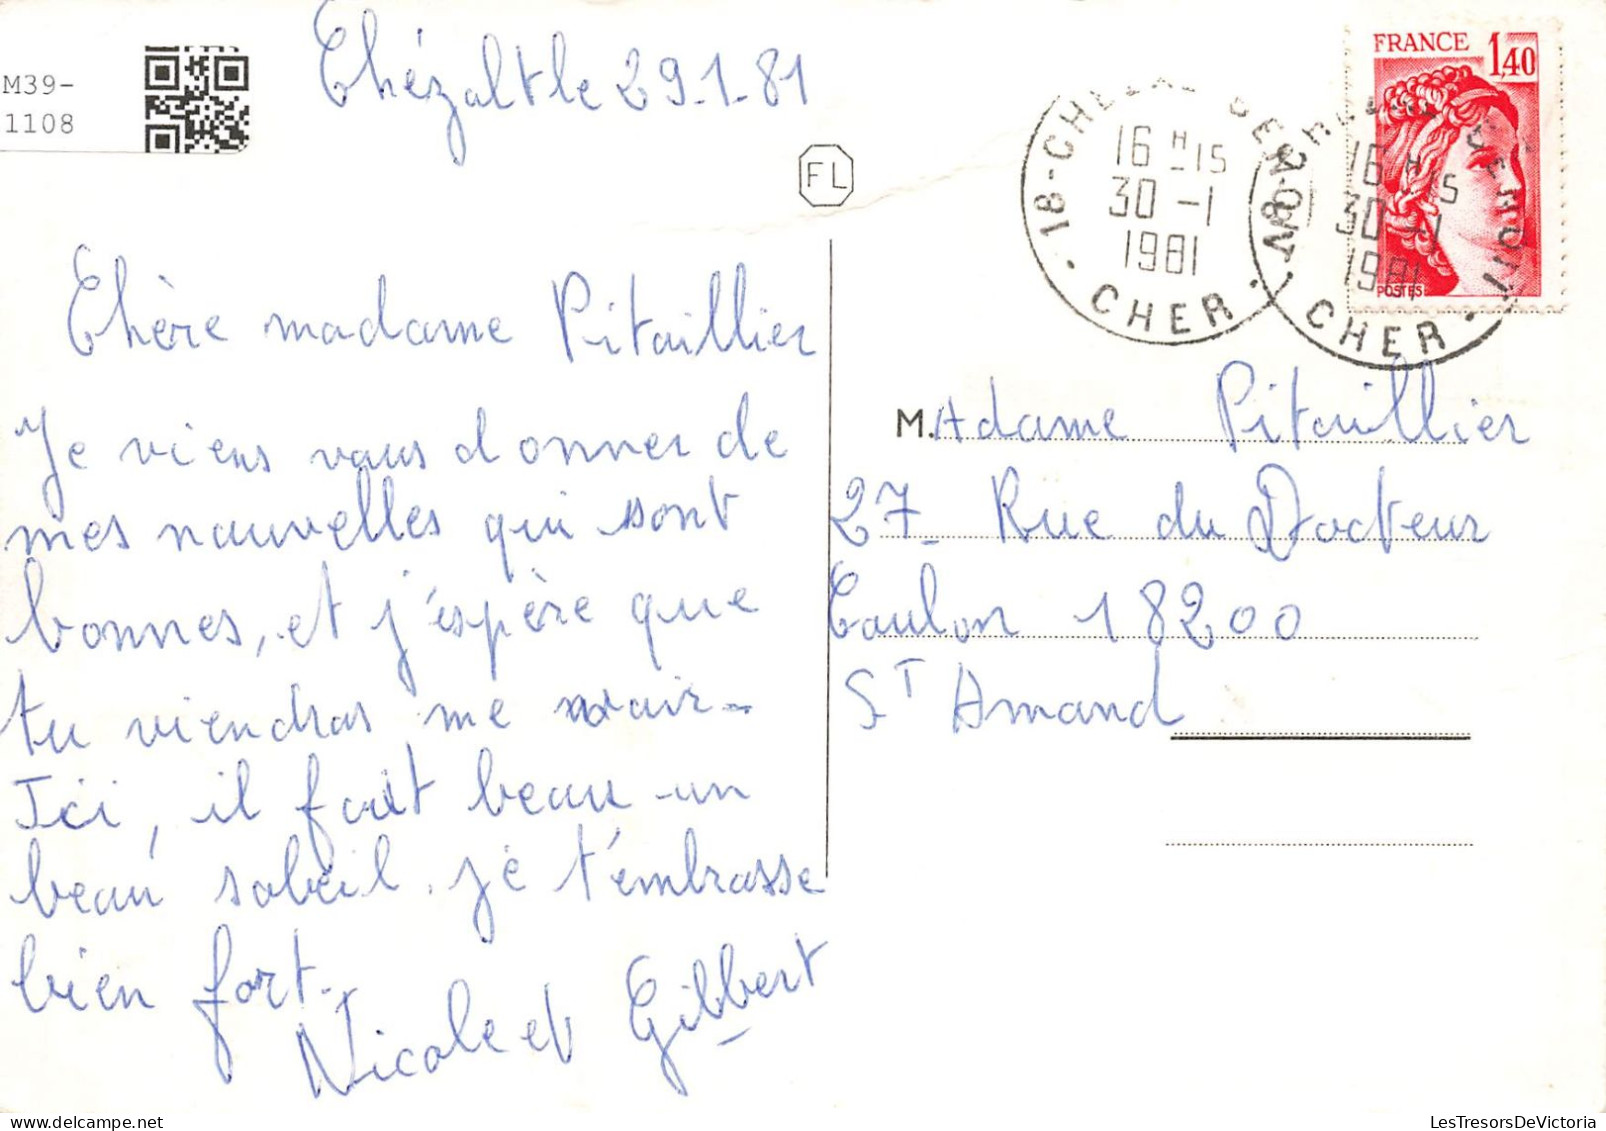 M39-
1108
Chézal le 29-1-81
FL
FRANCE 1,40
POSTES
16 H 15
30 -1
1981
18 - CHEZAL BENOIT
CHER
16 H 15
30 -1
1981
18 - CHEZAL BENOIT
CHER
Chère madame Pitaillier
Je viens vous donner de
mes nouvelles qui sont
bonnes, et j'espère que
tu viendras me voir -
Ici, il fait beau un
beau soleil. je t'embrasse
bien fort.
Nicole et Gilbert
M.Adame Pitaillier
27 Rue du Docteur
Coulon 18200
ST Amand
LesTresorsDeVictoria